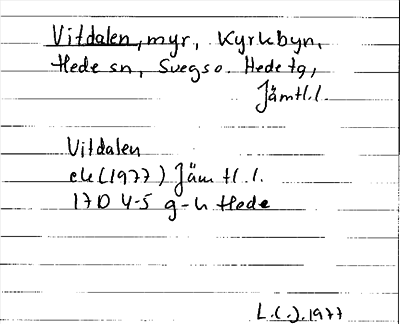 Vitdalen, myr, Kyrkbyn,
Hede sn, Svegs o. Hede tg,
Jämtl.l.
Vitdalen
ek (1977) Jämtl.l.
17D 4-5 g-h Hede
L.(.).1977